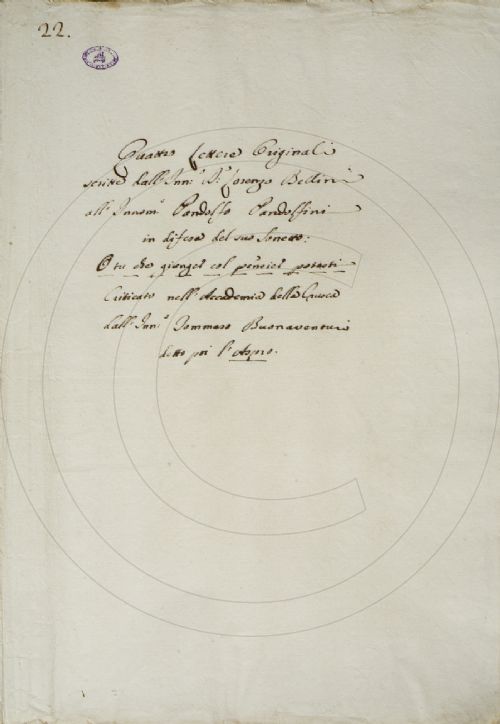 22.
Quattro Lettere Originali
scritte dall'Inn.º S.r Lorenzo Bellini
all'Innom.º Pandolfo Pandolfini
in difesa del suo Sonetto:
O tu che giungi col pensier potesti
Criticato nell'Accademia della Crusca
dall'Inn.º Tommaso Buonaventuri
detto poi l'Aspro.